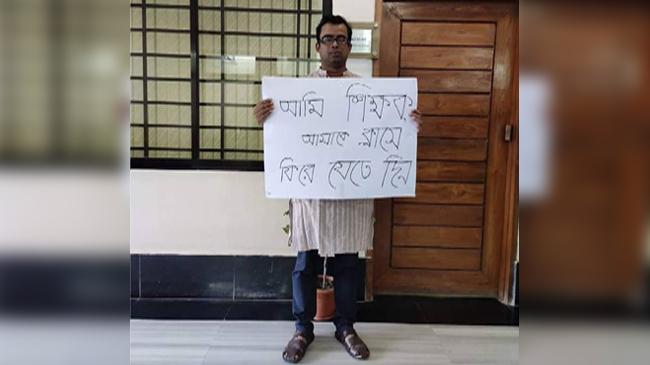 আমি শিক্ষক
আমাকে ক্লাসে
ফিরে যেতে দিন